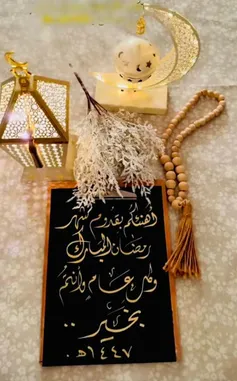 أهنئكم بقدوم شهر
رمضان المبارك
وكل عام وأنتم
بخير ..
١٤٤٧هـ